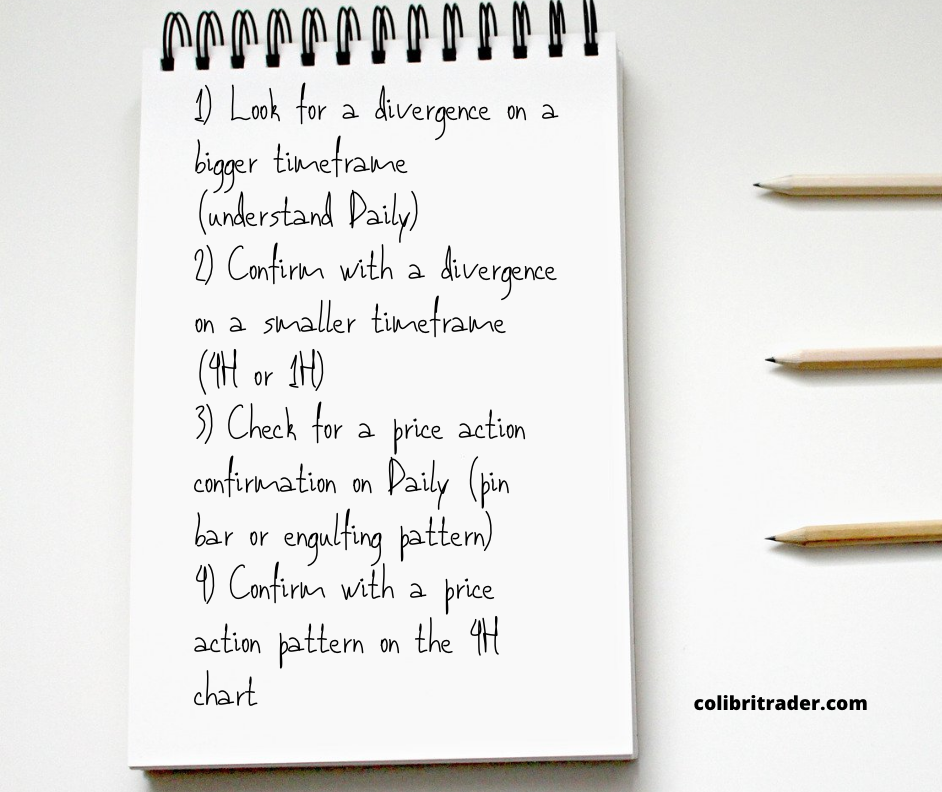 1) Look for a divergence on a
bigger timeframe
(understand Daily)
2) Confirm with a divergence
on a smaller timeframe
(4H or 1H)
3) Check for a price action
confirmation on Daily (pin
bar or engulfing pattern)
4) Confirm with a price
action pattern on the 4H
chart
colibritrader.com